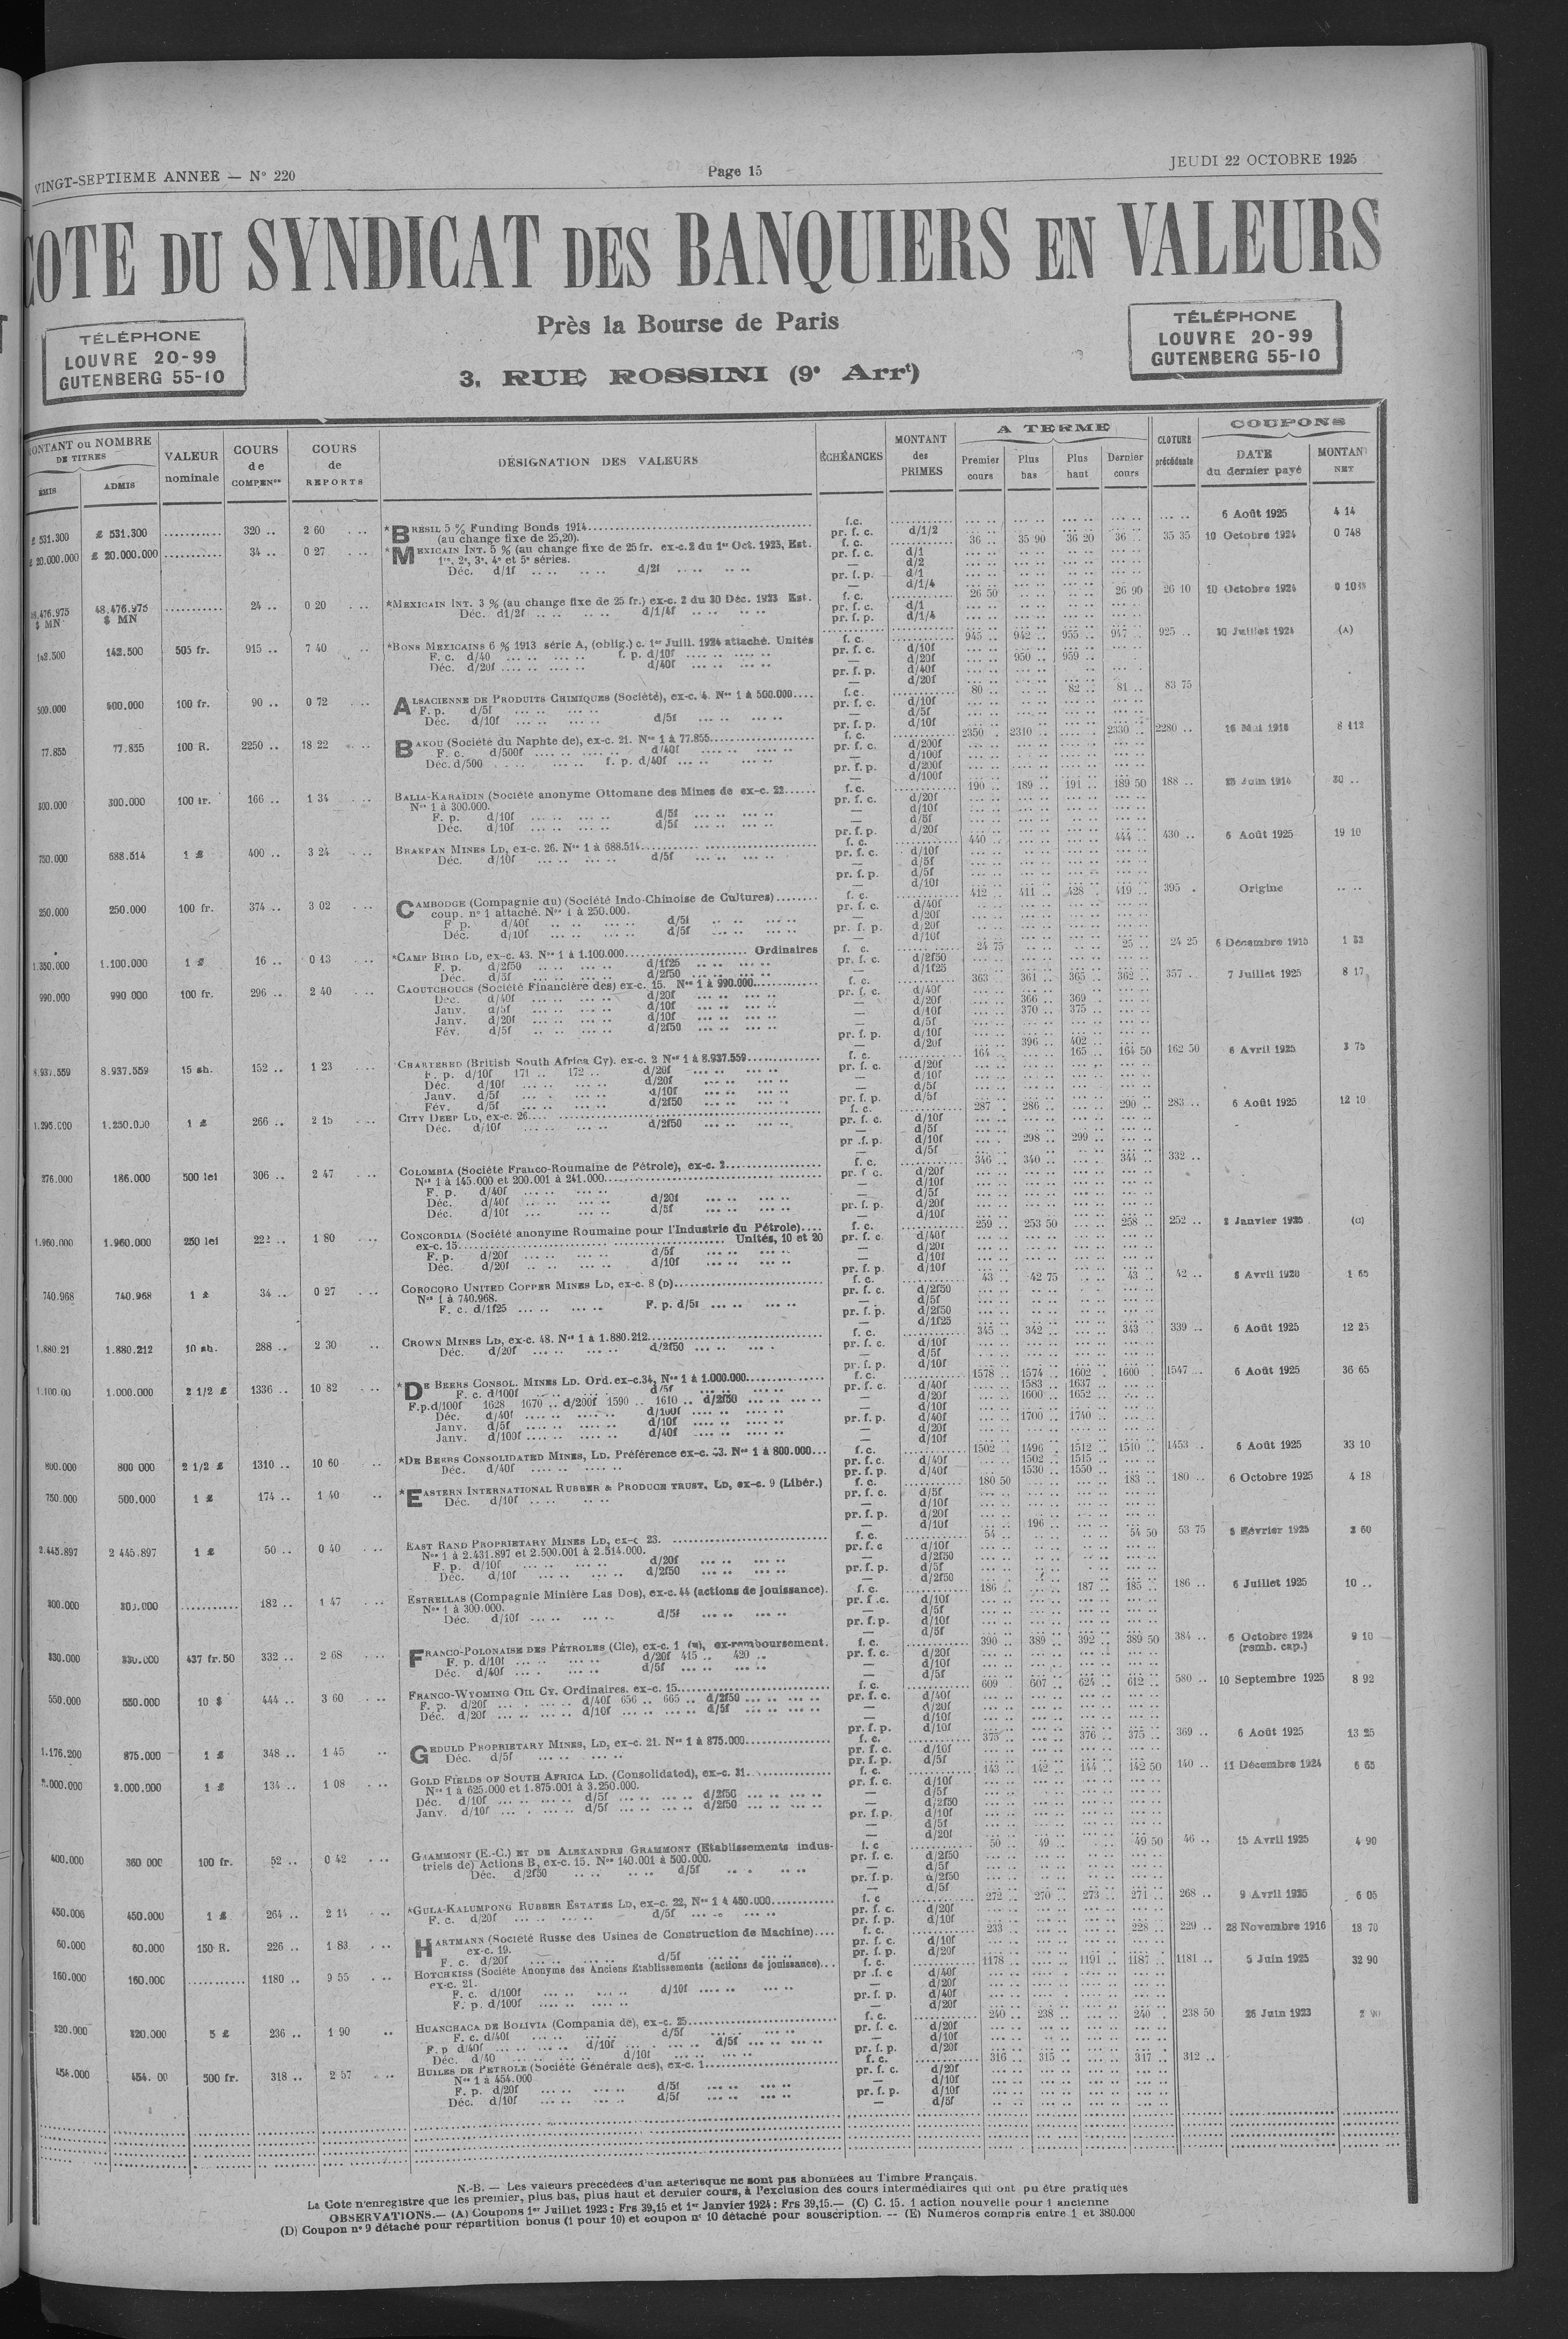 VINGT-SEPTIEME ANNEE — N° 220
Page 15
JEUDI 22 OCTOBRE 1925
COTE DU SYNDICAT DES BANQUIERS EN VALEURS
Près la Bourse de Paris
3, RUE ROSSINI (9e Arrt)
TÉLÉPHONE
LOUVRE 20-99
GUTENBERG 55-10
TÉLÉPHONE
LOUVRE 20-99
GUTENBERG 55-10
MONTANT ou NOMBRE DE TITRES
ÉMIS ADMIS
VALEUR nominale
COURS de COMPENon
COURS de REPORTS
DÉSIGNATION DES VALEURS
ÉCHÉANCES
MONTANT des PRIMES
A TERME
Premier cours Plus bas Plus haut Dernier cours
CLOTURE précédente
COUPONS
DATE du dernier payé
MONTANT NET
£ 531.300 £ 531.300 320 .. 2 60 *BRÉSIL 5 % Funding Bonds 1914 f.c. 6 Août 1925 4 14
(au change fixe de 25,20). pr. f. c. d/1/2
£ 20.000.000 £ 20.000.000 34 .. 0 27 *MEXICAIN INT. 5 % (au change fixe de 25 fr. ex-c. 2 du 1er Oct. 1923, Est. f. c. 36 .. 35 90 36 20 36 .. 35 35 10 Octobre 1924 0 748
1re, 2e, 3e, 4e et 5e séries. pr. f. c. d/1
Déc. d/1f d/2f
48.476.975 $ MN 24 .. 0 20 *MEXICAIN INT. 3 % (au change fixe de 25 fr.) ex-c. 2 du 30 Déc. 1923 Est. f. c. 26 50 26 90 26 10 10 Octobre 1924
Déc. d1/2f d/1/4f
142.500 142.500 505 fr. 915 .. 7 40 *BONS MEXICAINS 6 % 1913 série A, (oblig.) c. 1er Juill. 1924 attaché. Unités f. c. 945 .. 942 .. 955 .. 947 .. 925 .. 30 Juillet 1924 (A)
F. c. d/40 f. p. d/10f pr. f. c. d/10f
Déc. d/20f d/40f — d/20f 950 .. 959 ..
500.000 500.000 100 fr. 90 .. 0 72 ALSACIENNE DE PRODUITS CHIMIQUES (Société), ex-c. 4. Nos 1 à 500.000 f.c. 80 .. 82 .. 81 .. 83 75
F. p. d/5f
Déc. d/10f d/5f
77.855 77.855 100 R. 2250 .. 18 22 BAKOU (Société du Naphte de), ex-c. 21. Nos 1 à 77.855 f. c. 2350 . 2310 .. 2330 .. 2280 .. 16 Mai 1916 8 412
F. c. d/500f d/40f
Déc. d/500 f. p. d/40f
300.000 300.000 100 fr. 166 .. 1 34 BALIA-KARAÏDIN (Société anonyme Ottomane des Mines de ex-c. 22 f. c. 190 .. 189 .. 191 .. 189 50 188 .. 25 Juin 1914 30 ..
Nos 1 à 300.000.
F. p. d/10f d/5f
Déc. d/10f d/5f
750.000 688.514 1 £ 400 .. 3 24 BRAKPAN MINES LD, ex-c. 26. Nos 1 à 688.514 f. c. 440 .. 444 .. 430 .. 6 Août 1925 19 10
Déc. d/10f d/5f
250.000 250.000 100 fr. 374 .. 3 02 CAMBODGE (Compagnie du) (Société Indo-Chinoise de Cultures) f. c. 412 .. 411 .. 428 . 419 .. 395 . Origine
coup. n° 1 attaché. Nos 1 à 250.000.
F. p. d/40f d/5f
Déc. d/10f d/5f
1.350.000 1.100.000 1 £ 16 .. 0 13 *CAMP BIRD LD, ex-c. 43. Nos 1 à 1.100.000 Ordinaires f. c. 24 75 25 .. 24 25 6 Décembre 1915 1 32
F. p. d/2f50 d/1f25
Déc. d/5f d/2f50
990.000 990 000 100 fr. 296 .. 2 40 CAOUTCHOUCS (Société Financière des) ex-c. 15. Nos 1 à 990.000 f. c. 363 .. 361 .. 365 .. 362 .. 357 .. 7 Juillet 1925 8 17
Déc. d/40f d/20f pr. f. c. d/40f
Janv. d/5f d/10f — d/20f 366 .. 369 .
Janv. d/20f d/10f — d/10f 370 .. 375 ..
Fév. d/5f d/2f50
d/20f 396 .. 402 ..
8.937.559 8.937.559 15 sh. 152 .. 1 23 CHARTERED (British South Africa Cy). ex-c. 2 Nos 1 à 8.937.559 f. c. 164 .. 165 .. 164 50 162 50 6 Avril 1925 3 75
F. p. d/10f 171 .. 172 .. d/20f
Déc. d/10f d/20f
Janv. d/5f d/10f
Fév. d/5f d/2f50
1.295.000 1.250.000 1 £ 266 .. 2 15 CITY DEEP LD, ex-c. 26 f. c. 287 . 286 .. 290 .. 283 .. 6 Août 1925 12 10
Déc. d/10f d/2f50
pr .f. p. d/10f 298 .. 299 ..
276.000 186.000 500 lei 306 .. 2 47 COLOMBIA (Société Franco-Roumaine de Pétrole), ex-c. 2 f. c. 346 .. 340 .. 344 .. 332 ..
Nos 1 à 145.000 et 200.001 à 241.000
F. p. d/40f
Déc. d/40f d/20f
Déc. d/10f d/5f
1.960.000 1.960.000 250 lei 222 .. 1 80 CONCORDIA (Société anonyme Roumaine pour l'Industrie du Pétrole) f. c. 259 .. 253 50 258 .. 252 .. 2 Janvier 1925 (C)
ex-c. 15 Unités, 10 et 20
F. p. d/20f d/5f
Déc. d/20f d/10f
740.968 740.968 1 £ 34 .. 0 27 COROCORO UNITED COPPER MINES LD, ex-c. 8 (D) f. c. 43 .. 42 75 43 .. 42 .. 8 Avril 1920 1 65
Nos 1 à 740.968.
F. c. d/1f25 F. p. d/5f
1.880.21 1.880.212 10 sh. 288 .. 2 30 CROWN MINES LD, ex-c. 48. Nos 1 à 1.880.212 f. c. 345 .. 342 .. 343 .. 339 .. 6 Août 1925 12 25
Déc. d/20f d/2f50
1.100.00 1.000.000 2 1/2 £ 1336 .. 10 82 *DE BEERS CONSOL. MINES LD. Ord. ex-c. 34, Nos 1 à 1.000.000 f. c. 1578 .. 1574 .. 1602 .. 1600 .. 1547 .. 6 Août 1925 36 65
F. c. d/100f d/5f pr. f. c. d/40f 1583 .. 1637 ..
F.p.d/100f 1628 1670 .. d/200f 1590 .. 1610 .. d/2f50 — d/20f 1600 .. 1652 ..
Déc. d/40f d/100f
Janv. d/5f d/10f pr. f. p. d/40f 1700 .. 1740 ..
Janv. d/100f d/40f
800.000 800 000 2 1/2 £ 1310 .. 10 60 *DE BEERS CONSOLIDATED MINES, LD. Préférence ex-c. 33. Nos 1 à 800.000 f. c. 1502 .. 1496 .. 1512 .. 1510 .. 1453 .. 6 Août 1925 33 10
Déc. d/40f pr. f. c. d/40f 1502 .. 1515 ..
pr. f. p. d/40f 1530 .. 1550 ..
750.000 500.000 1 £ 174 .. 1 40 *EASTERN INTERNATIONAL RUBBER & PRODUCE TRUST, LD, ex-c. 9 (Libér.) f. c. 180 50 183 .. 180 .. 6 Octobre 1925 4 18
Déc. d/10f
d/10f 196 ..
2.445.897 2 445.897 1 £ 50 .. 0 40 EAST RAND PROPRIETARY MINES LD, ex-c 23. f. c. 54 .. 54 50 53 75 5 Février 1925 2 60
Nos 1 à 2.431.897 et 2.500.001 à 2.514.000.
F. p. d/10f d/20f
Déc. d/10f d/2f50
300.000 300.000 182 .. 1 47 ESTRELLAS (Compagnie Minière Las Dos), ex-c. 44 (actions de jouissance). f. c. 186 .. 187 .. 185 .. 186 .. 6 Juillet 1925 10 ..
Nos 1 à 300.000.
Déc. d/10f d/5f
330.000 330.000 437 fr. 50 332 .. 2 68 FRANCO-POLONAISE DES PÉTROLES (Cie), ex-c. 1 (E), ex-remboursement. f. c. 390 .. 389 .. 392 .. 389 50 384 .. 6 Octobre 1924 (remb. cap.) 9 10
F. p. d/10f d/20f 415 .. 420 ..
Déc. d/40f d/5f
550.000 550.000 10 $ 444 .. 3 60 FRANCO-WYOMING OIL CY. Ordinaires. ex-c. 15 f. c. 609 .. 607 .. 624 .. 612 .. 580 .. 10 Septembre 1925 8 92
F. p. d/20f d/40f 656 .. 665 .. d/2f50
Déc. d/20f d/10f d/5f
1.176.200 875.000 1 £ 348 .. 1 45 GEDULD PROPRIETARY MINES, LD, ex-c. 21. Nos 1 à 875.000 f. c. 375 .. 376 .. 375 .. 369 .. 6 Août 1925 13 25
Déc. d/5f
2.000.000 2.000.000 1 £ 134 .. 1 08 GOLD FIELDS OF SOUTH AFRICA LD. (Consolidated), ex-c. 31 f. c. 143 .. 142 .. 144 .. 142 50 140 .. 11 Décembre 1924 6 65
Nos 1 à 625.000 et 1.875.001 à 3.250.000.
Déc. d/10f d/5f d/2f50
Janv. d/10f d/5f d/2f50
400.000 360 000 100 fr. 52 .. 0 42 GRAMMONT (E.-C.) ET DE ALEXANDRE GRAMMONT (Etablissements indus- f. c 50 .. 49 .. 49 50 46 .. 15 Avril 1925 4 90
triels de) Actions B, ex-c. 15. Nos 140.001 à 500.000.
Déc. d/2f50 d/5f
450.000 450.000 1 £ 264 .. 2 14 *GULA-KALUMPONG RUBBER ESTATES LD, ex-c. 22, Nos 1 à 450.000 f. c 272 .. 270 .. 273 .. 271 .. 268 .. 9 Avril 1925 6 05
F. c. d/20f d/5f
60.000 60.000 150 R. 226 .. 1 83 HARTMANN (Société Russe des Usines de Construction de Machine) f. c. 233 .. 228 .. 229 .. 28 Novembre 1916 18 70
ex-c. 19.
F. c. d/20f d/5f
160.000 160.000 1180 .. 9 55 HOTCHKISS (Société Anonyme des Anciens Etablissements (actions de jouissance) f. c. 1178 .. 1191 .. 1187 .. 1181 .. 5 Juin 1925 32 90
ex-c. 21.
F. c. d/100f d/10f
F. p. d/100f
320.000 320.000 5 £ 236 .. 1 90 HUANCHACA DE BOLIVIA (Compania de), ex-c. 25 f. c. 240 .. 238 .. 240 .. 238 50 26 Juin 1923 2 90
F. c. d/40f d/5f
F. p d/40f d/10f d/5f
Déc. d/40 d/10f
454.000 454. 00 500 fr. 318 .. 2 57 HUILES DE PETROLE (Société Générale des), ex-c. 1 f. c. 316 .. 315 .. 317 .. 312 ..
Nos 1 à 454.000
F. p. d/20f d/5f
Déc. d/10f d/5f
N.-B. — Les valeurs précédées d'un astérisque ne sont pas abonnées au Timbre Français.
La Cote n'enregistre que les premier, plus bas, plus haut et dernier cours, à l'exclusion des cours intermédiaires qui ont pu être pratiqués
OBSERVATIONS.— (A) Coupons 1er Juillet 1923 : Frs 39,15 et 1er Janvier 1924 : Frs 39,15.— (C) C. 15. 1 action nouvelle pour 1 ancienne
(D) Coupon n° 9 détaché pour répartition bonus (1 pour 10) et coupon n° 10 détaché pour souscription. -- (E) Numéros compris entre 1 et 380.000